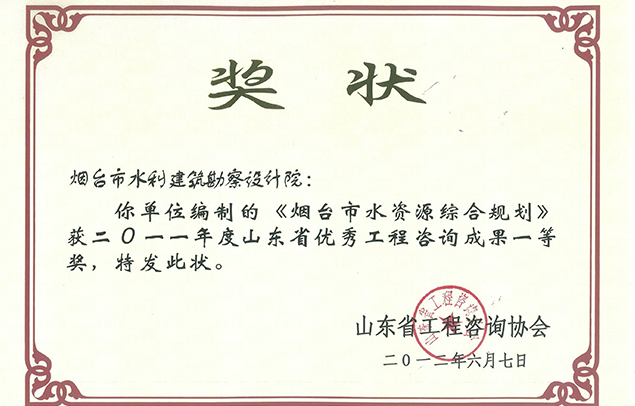 奖 状
烟台市水利建筑勘察设计院：
你单位编制的《烟台市水资源综合规划》
获二〇一一年度山东省优秀工程咨询成果一等
奖，特发此状。
山东省工程咨询协会
二〇一二年六月七日